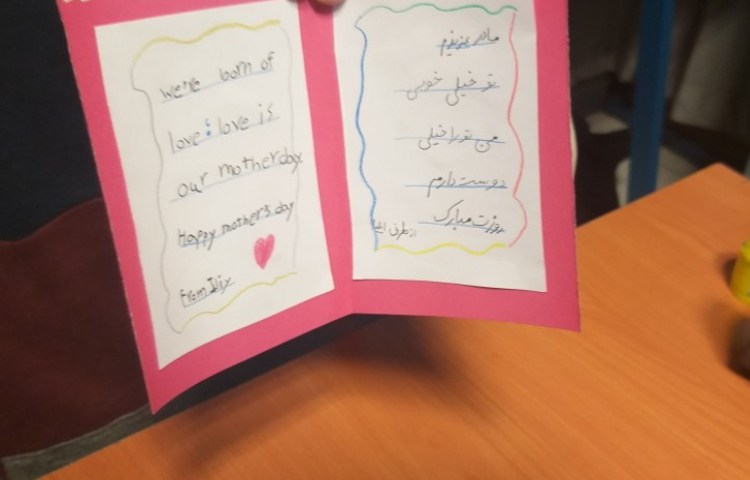 we're born of
love; love is
our motherday
Happy mother's day
From Iliy
مادر عزیزم
تو خیلی خوبی
من تو را خیلی
دوست دارم
روزت مبارک
از طرف